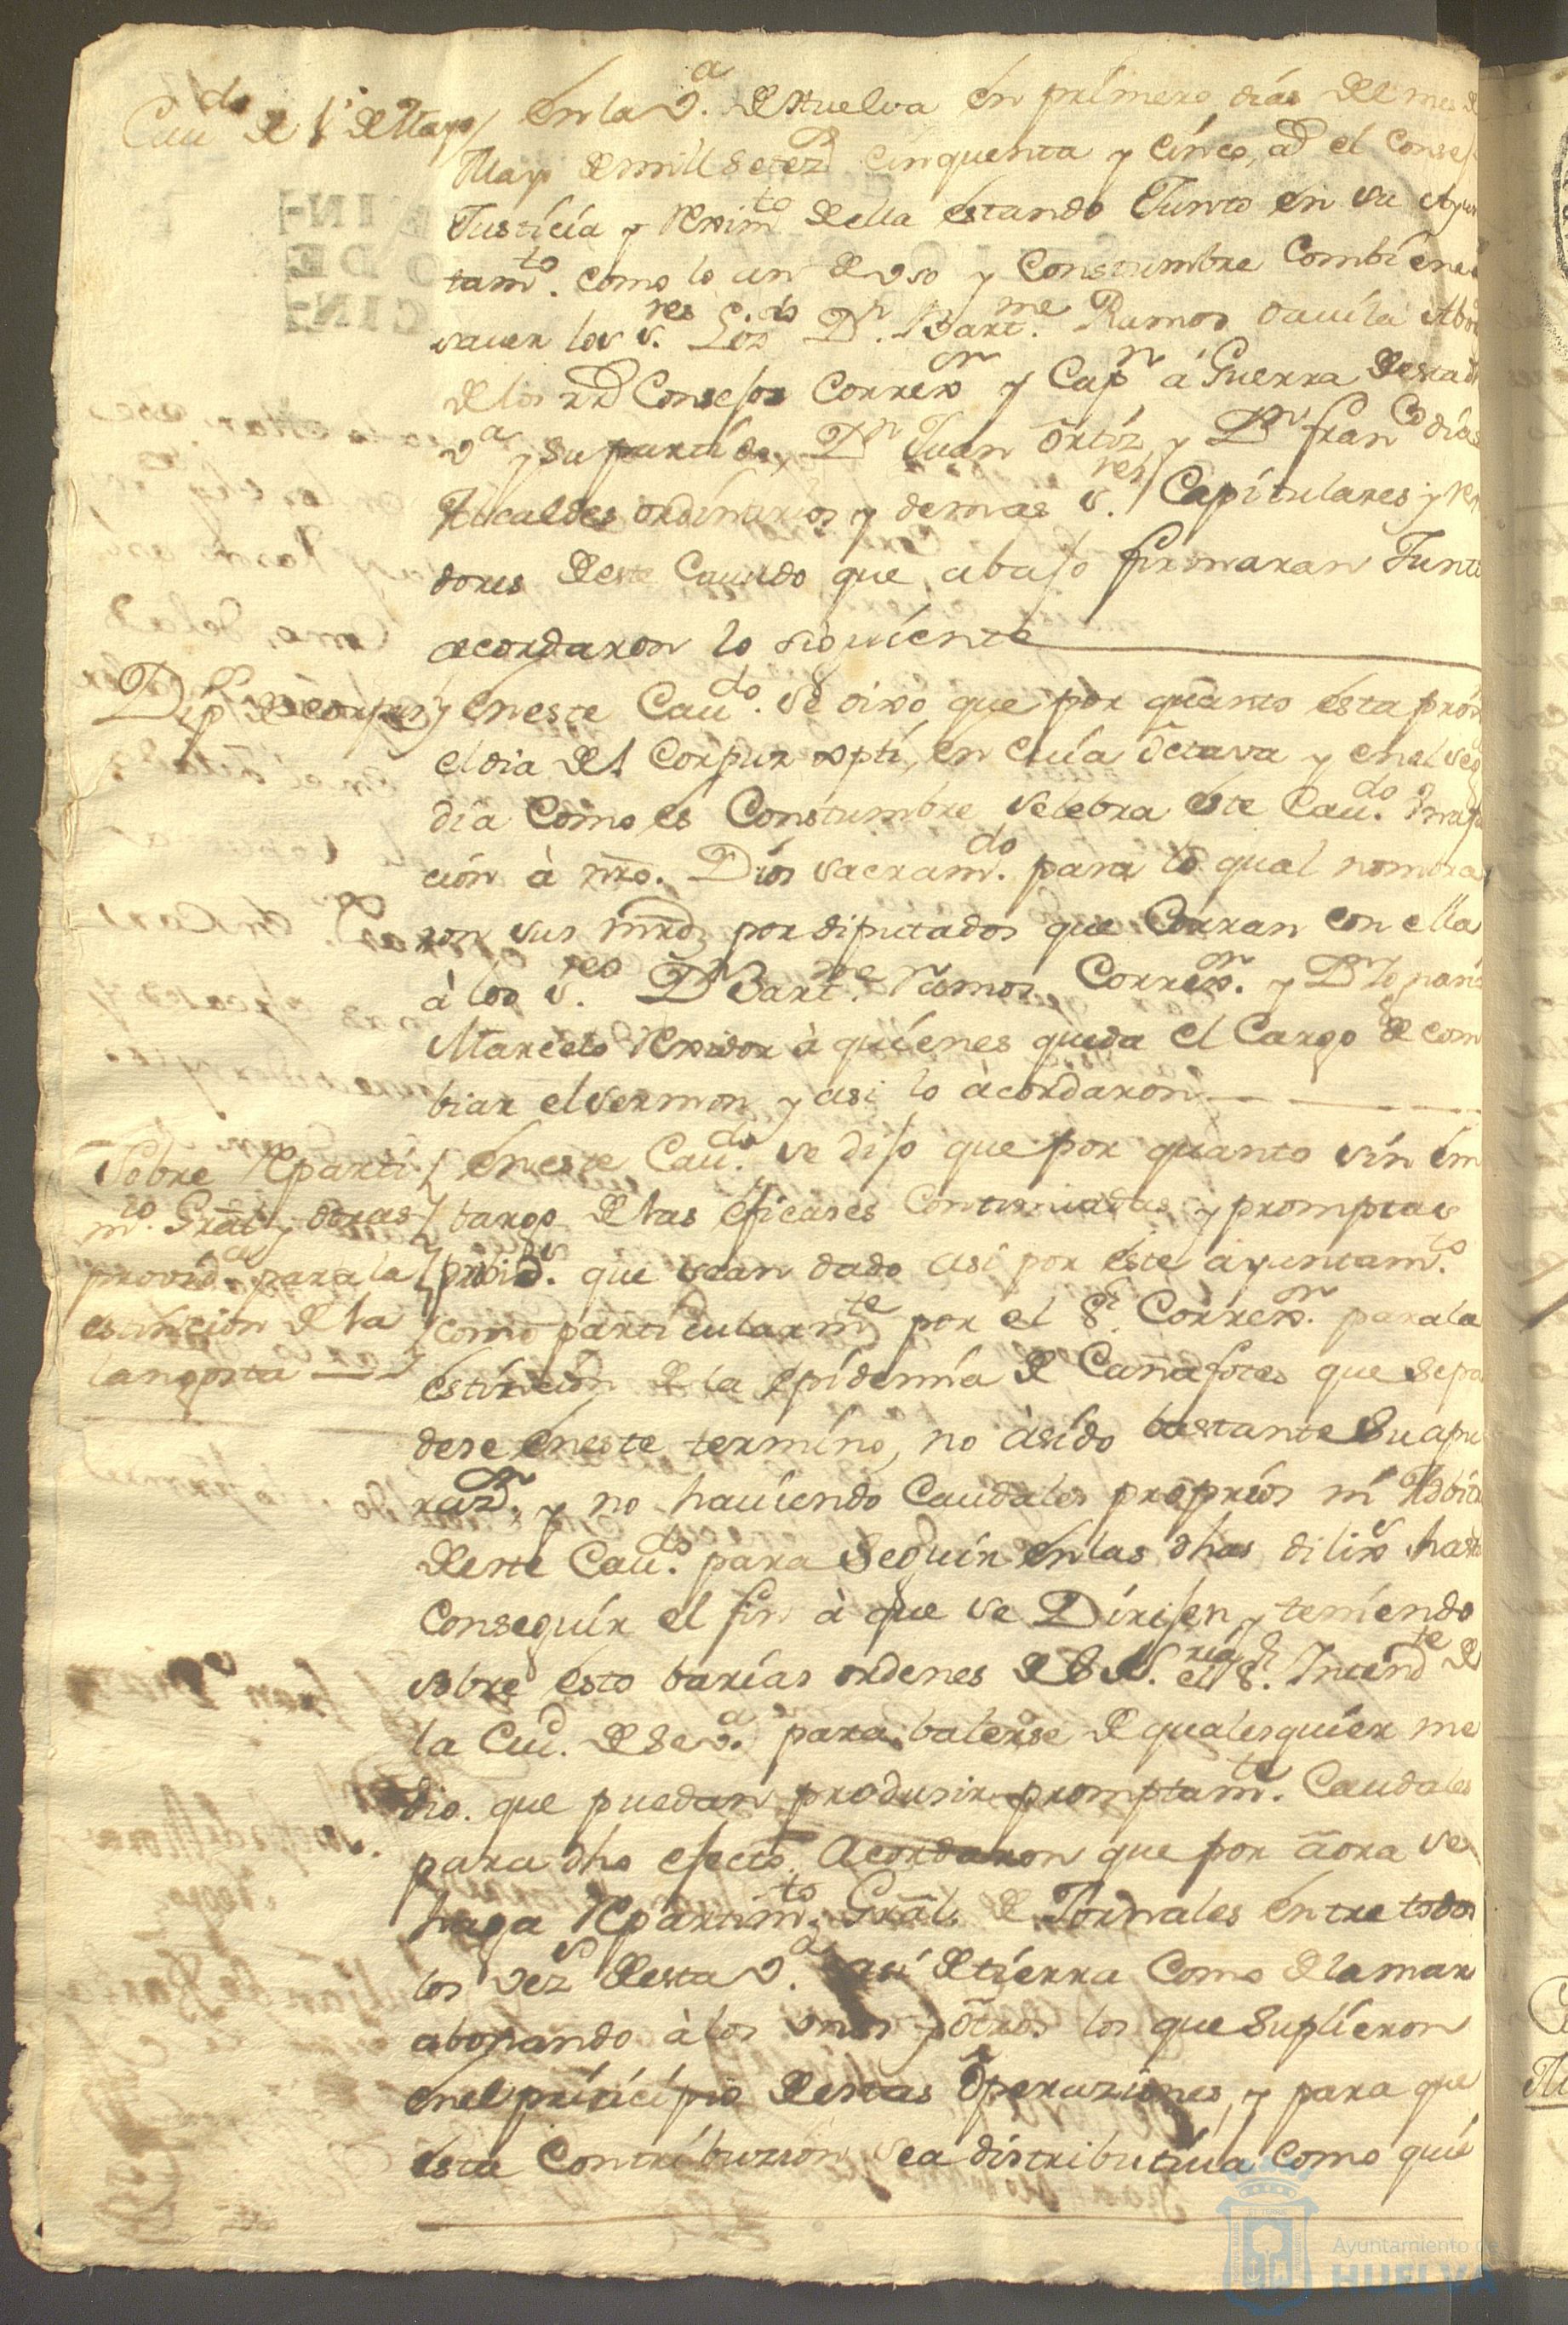 Caudo de 1º de Mayo
en la Va. de Huelva en primero dias del mes de
Mayo de mill setezs cinquenta y cinco, el Consejo
Justicia y Reximto della estando Junto en su Ayun
tamto. como lo an de uso y Constumbre Combiene a
saver los sres. Lizdo Dn. Bartme. Ramos Davila Abogdo
de los Rs Consejos Correxor y Capn à Guerra desta dha
va y su partido, Dn Juan Ortiz, y Dn Franco dias
Alcaldes ordinarios y demas sres. Capitulares y Rexi
dores deste Cauildo que abajo firmaran Juntos
acordaron lo siguiente
Dipos de corpus
en este Caudo. se dixo que por quanto esta proxmo
el dia del Corpus xpti, en cuia octava y en el segdo
dia Como es Constumbre selebra este Caudo. Funs
cion à nro. Dios sacramdo. para lo qual nombra
ron sus mrds por diputados que Corran con ella
à los sres. Dn Bartme. Ramos Correxor. y Dn
Marcelo Rexidor à quienes queda el Cargo de com
biar el sermon y asi lo àcordaron
Sobre Reparti
mto. Gral y otras
providas para la
estincion de la
langosta
en este Caudo. se dijo que por quanto sin em
bargo de las eficases Continuadas y promptas
provids. que sean dado asi por este ayuntamto.
como particularmte por el Sr. Correxor. para la
estincion de la epidemia de Cañafotes que se pa
dese en este termino, no àsido bastante su apu
razon, y no hauiendo Caudales proprios ni Adbitrs
deste Caudo. para Seguir en las dhas dilixs hasta
Conseguir el fin à que se Dirijen, y teniendo
sobre esto barias ordenes de S Sria. el Sr. Intendte de
la Ciud. de Seva. para balerse de qualesquier me
dio que puedan produsir promptamte. Caudales
para dho efecto. Acordaron que por aora se
haga Repartimto. Gral. de Jornales entre todos
los vezs desta va. asi de tierra Como de la mar
abonando à los unos y otros los que suplieron
en el principio destas operaziones, y para que
esta Contribuzion sea distributiua como quie
Ayuntamiento de
HUELVA